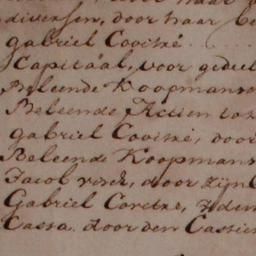 diversen, door haar be
Gabriel Covitsé
Capitaal, voor gedeel
Beleende Koopmans
Beleende Actien
gabriel Covitsé, door
Beleende Koopmans
Jacob, door zijn
Gabriel Coretse,
Cassa. door den Cassier